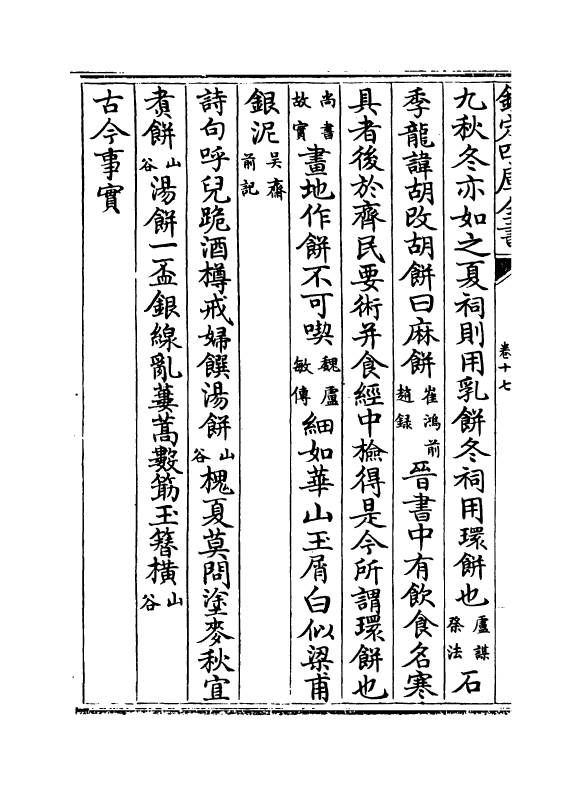 欽定四庫全書
卷十七
九秋冬亦如之夏祠則用乳餅冬祠用環餅也盧諶祭法石
季龍諱胡改胡餅曰麻餅崔鴻前趙録晉書中有飲食名寒
具者後於齊民要術并食經中檢得是今所謂環餅也
尚書故實畫地作餅不可喫魏盧敏傳細如華山玉屑白似梁甫
銀泥吴齋前記
詩句呼兒跪酒樽戒婦饌湯餅山谷槐夏莫問塗麥秋宜
煑餅山谷湯餅一盃銀線亂蔞蒿數筯玉簪横山谷
古今事實